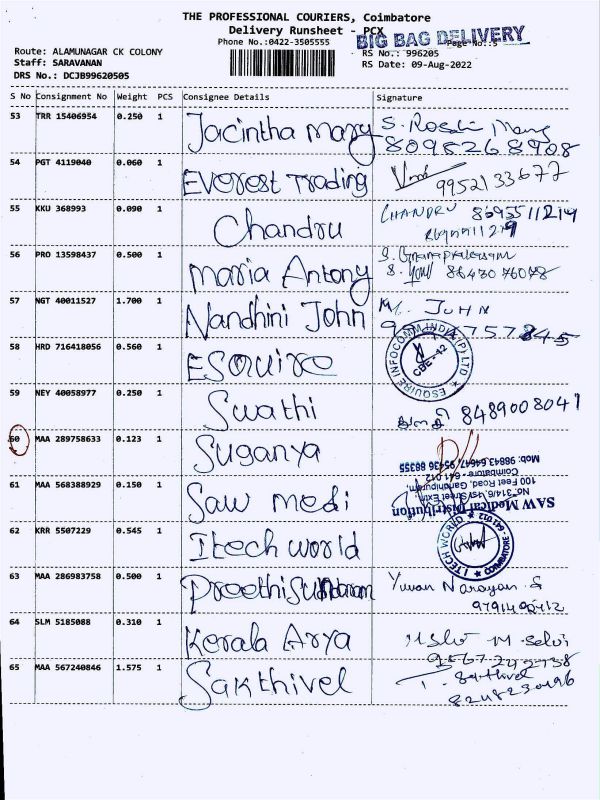 THE PROFESSIONAL COURIERS, Coimbatore
Delivery Runsheet - PCX
Phone No.:0422-3505555
BIG BAG DELIVERY
Page No.:5
Route: ALAMUNAGAR CK COLONY
RS No.: 996205
Staff: SARAVANAN
RS Date: 09-Aug-2022
DRS No.: DCJB99620505
S No Consignment No Weight PCS Consignee Details Signature
53 TRR 15406954 0.250 1 Jacintha mary
54 PGT 4119040 0.060 1 Everest Trading 9952133677
55 KKU 368993 0.090 1 Chandru CHANDRU 8695511219
56 PRO 13598437 0.500 1 maria Antony
57 NGT 40011527 1.700 1 Nandhini John JOHN
58 HRD 716418056 0.560 1 ESquire ESQUIRE INFOCOMM INDIA (P) LTD CBE-42
59 NEY 40058977 0.250 1 Swathi 8489008041
60 MAA 289758633 0.123 1 Suganya D/L
61 MAA 568388929 0.150 1 Saw medi
SAW Medical Distribution
No: 314/6, 4st Street Extn,
100 Feet Road, Gandhipuram,
Coimbatore - 641 012.
Mob: 98843 64647, 95436 88355
62 KRR 5507229 0.545 1 Itech world ITECH WORLD COIMBATORE 641 012
63 MAA 286983758 0.500 1 Preethi Sundaram Yuvan Narayan S
64 SLM 5185088 0.310 1 Kerala Arya M. Selvi
65 MAA 567240846 1.575 1 Sakthivel T. Sakthivel
8248230196